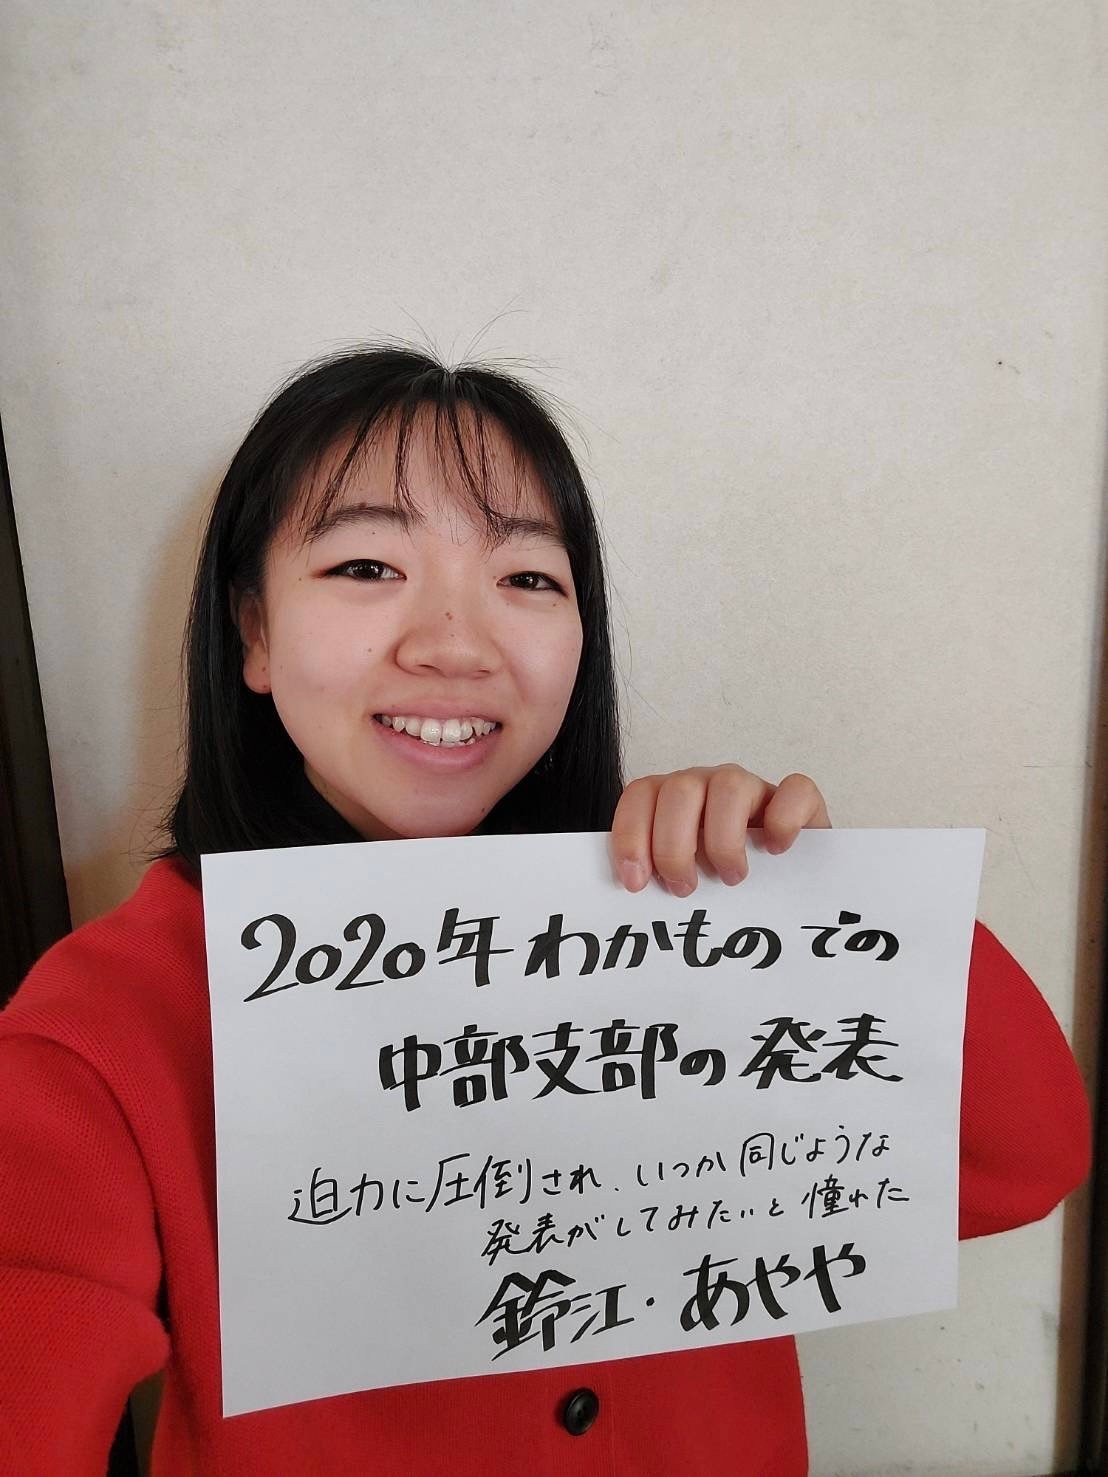 2020年わかものでの
中部支部の発表
迫力に圧倒され、いつか同じような
発表がしてみたいと憧れた
鈴江・あやや